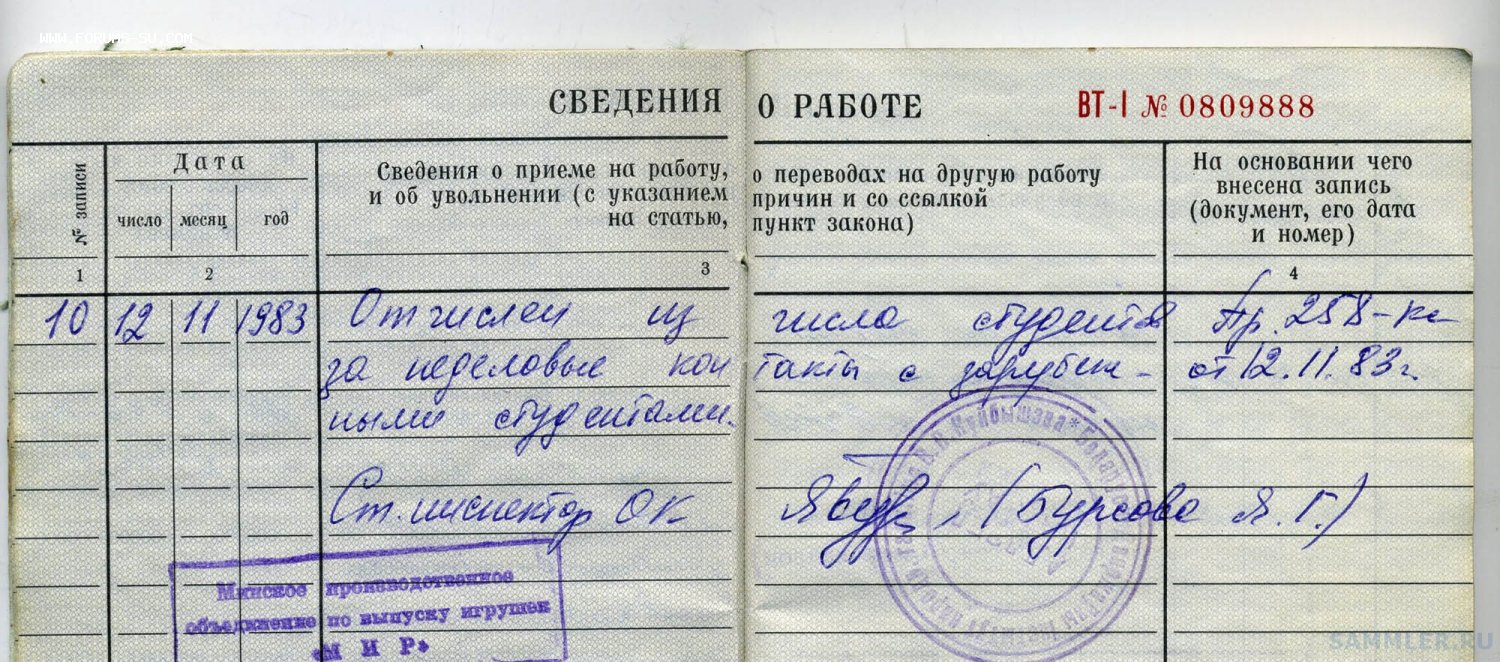 WWW.FORUMS-SU.COM
СВЕДЕНИЯ О РАБОТЕ ВТ-I № 0809888
№ записи
Дата
число месяц год
Сведения о приеме на работу, о переводах на другую работу
и об увольнении (с указанием причин и со ссылкой
на статью, пункт закона)
На основании чего
внесена запись
(документ, его дата
и номер)
1 2 3 4
10 12 11 1983 Отчислен из числа студентов Пр. 258-кс
за неделовые контакты с зарубеж- от 12.11.83г.
ными студентами.
Ст. инспектор ОК (Бурсова Я.Г.)
Минское производственное
объединение по выпуску игрушек
«МИР»
В.В. Куйбышева * Беларускі
SAMMLER.RU